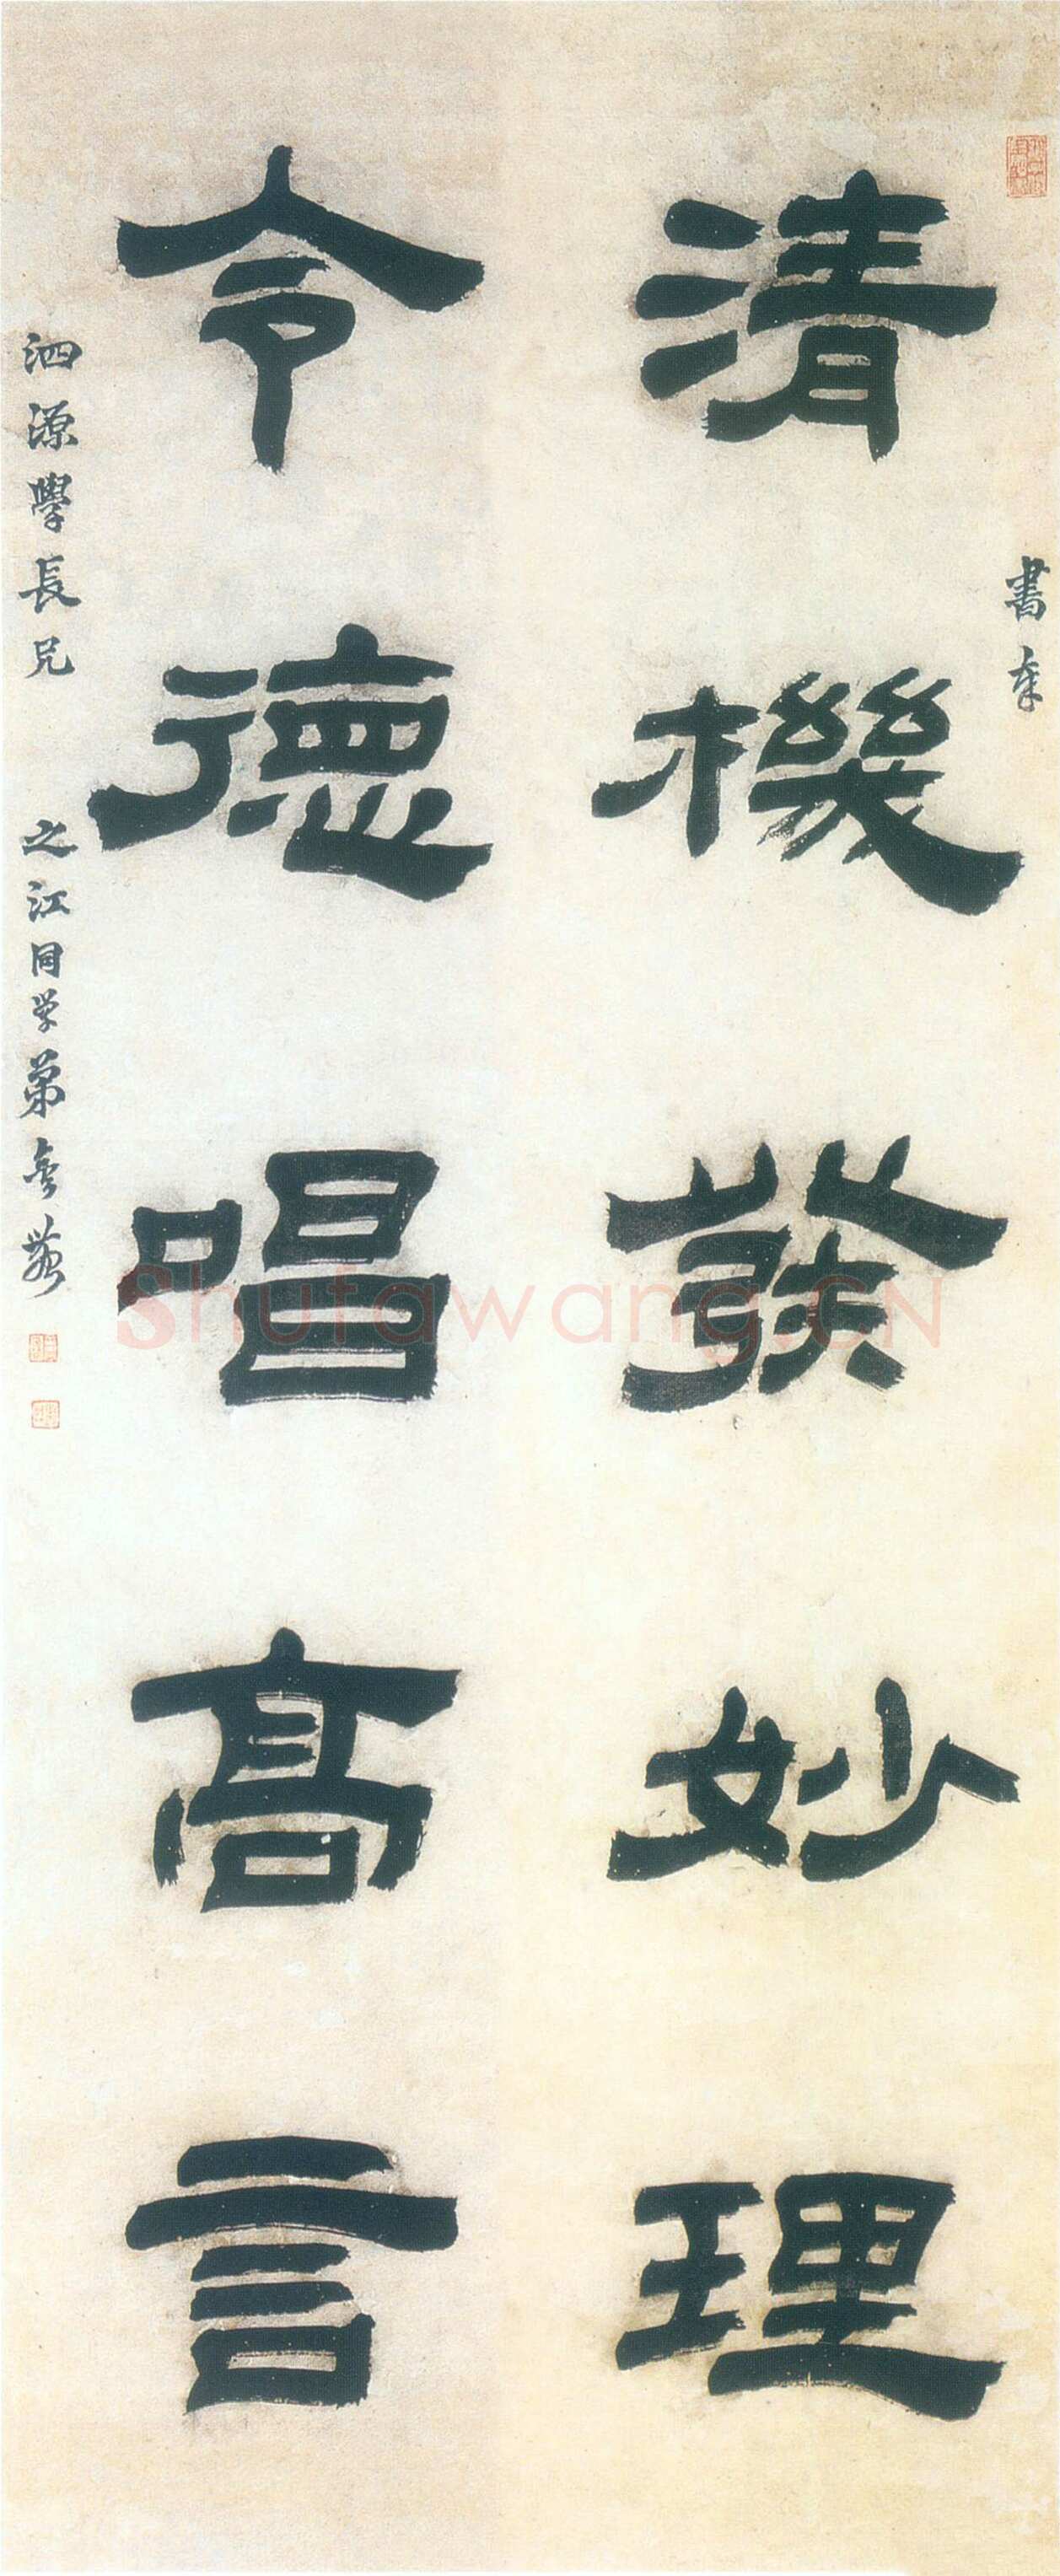 書奉
清機發妙理
令德唱高言
泗源學長兄
之江同学弟金農
Shufawang.CN